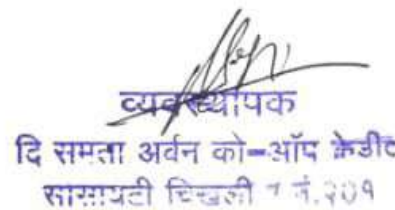 व्यवस्थापक
दि समता अर्वन को-ऑप क्रेडीट
सोसायटी चिखली र नं.२०१